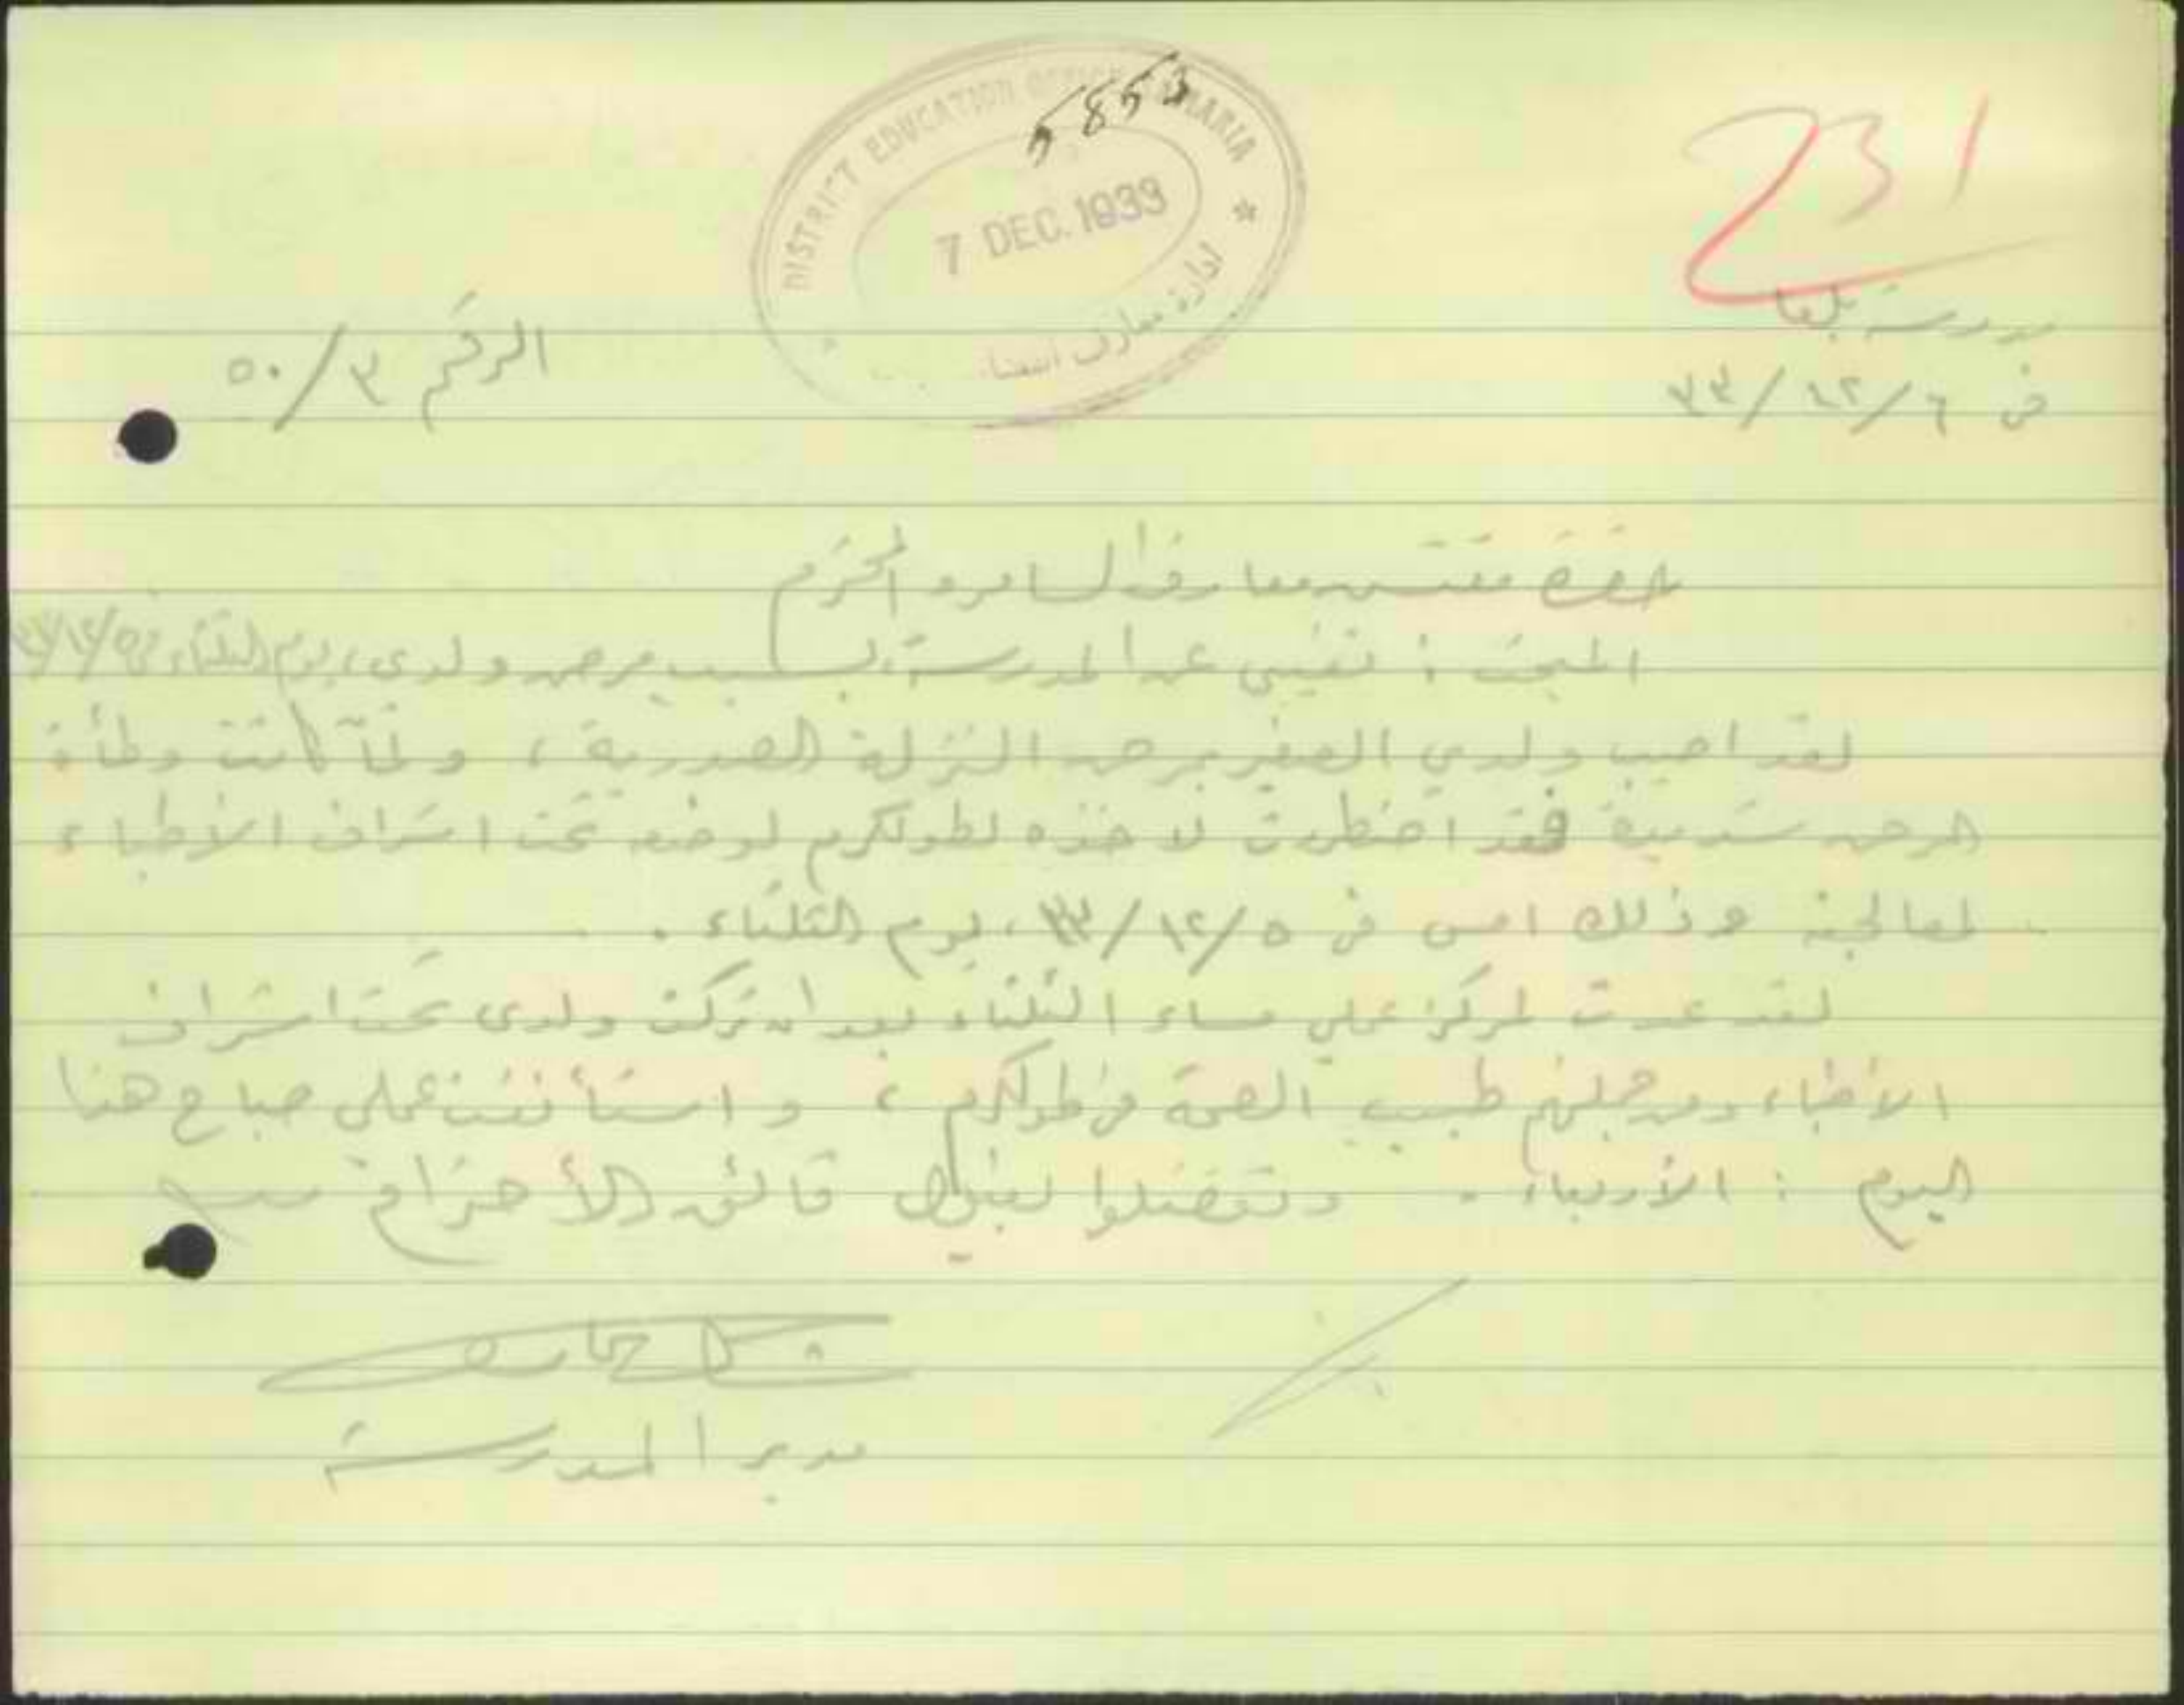 5853
231
DISTRICT EDUCATION OFFICE SAMARIA
7 DEC. 1933
ادارة معارف
مدرسة بلعا
الرقم ٣/٥٠
في ٦/١٢/٣٣
حضرة مفتش معارف السامرة المحترم
المبحث : تغيبي عن المدرسة، بسبب مرض ولدي، يوم الثلثاء في ٥/١٢/٣٣
لقد اصيب ولدي الصغير بمرض النزلة الصدرية ، ولمّا كانت وطأة
المرض شديدة فقد اضطررت لاخذه لطولكرم لوضعه تحت اشراف الأطباء
لمعالجته وذلك امس في ٥/١٢/٣٣ ، يوم الثلثاء .
لقد عدت لمركز عملي مساء الثلثاء بعد ان تركت ولدي تحت اشراف
الأطباء ومن جملتهم طبيب الصحة في طولكرم ، واستأنفت عملي صباح هذا
اليوم : الأربعاء . وتفضلوا بقبول فائق الأحترام
مدير المدرسة